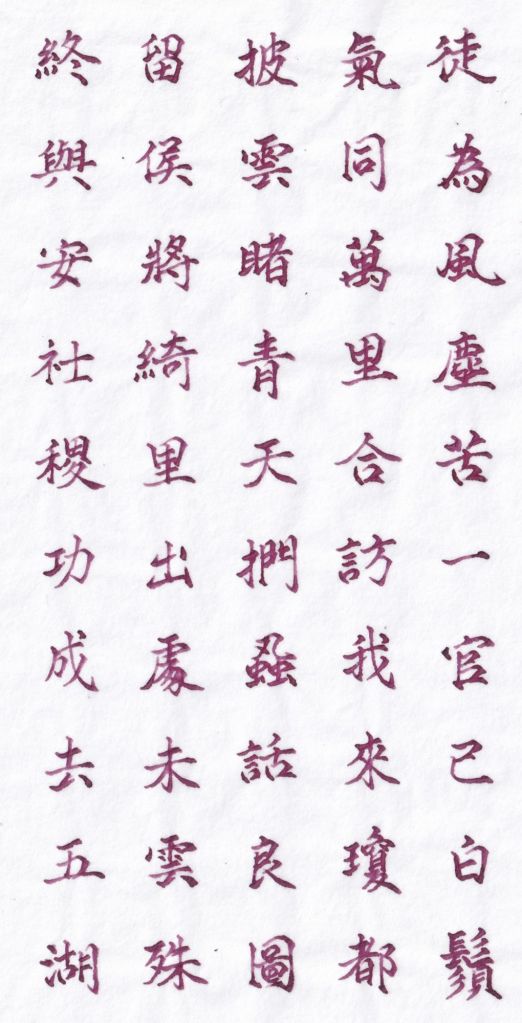 徒為風塵苦一官已白鬚
氣同萬里合訪我來瓊都
披雲睹青天捫蝨話良圖
留侯將綺里出處未雲殊
終與安社稷功成去五湖